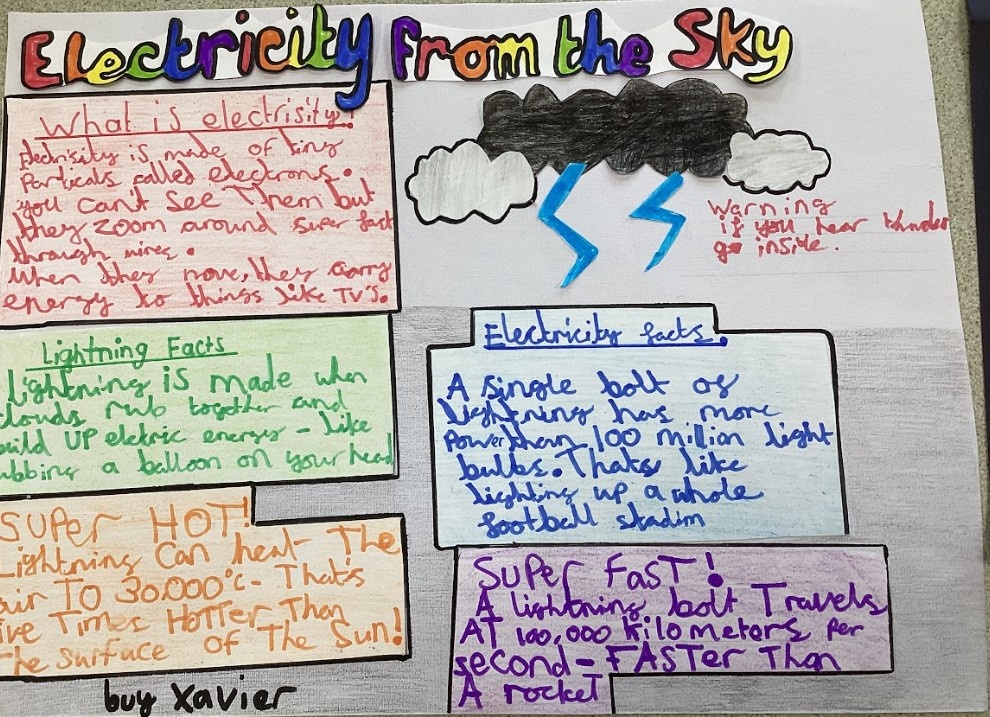 Electricity from the Sky
What is electrisity?
Electrisity is made of tiny
Particals called electrons.
you cant see Them but
they zoom around super fast
through wires.
When they move, they carry
energy to things like TV's.
Warning
if you hear thunder
go inside.
Lightning Facts
Lightning is made when
clouds rub together and
build UP eletric energy - like
rubbing a balloon on your head
Electricity facts.
A single bolt of
lightning has more
Power than 100 million light
bulbs. Thats like
lighting up a whole
football stadim
SUPer HOT!
Lightning Can heat The
air To 30.000°c - That's
five Times HoTTer Than
The surface of The Sun!
SuPer FasT!
A lightning bolt Travels
AT 100,000 Kilometers Per
second - FASTer Than
A rocket
buy Xavier